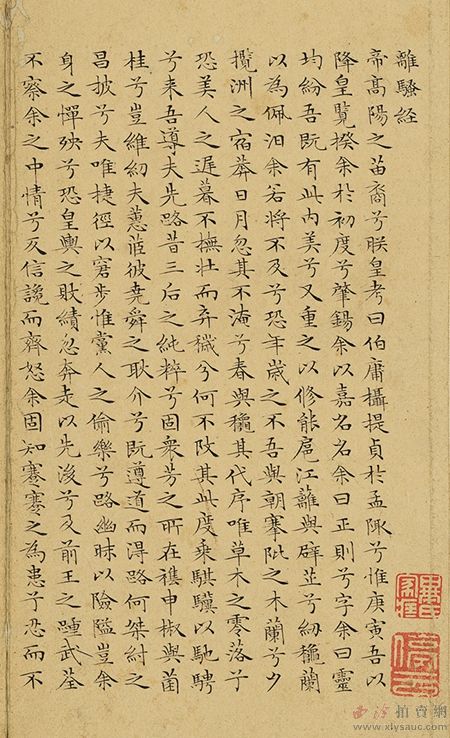 離騷経
帝高陽之苗裔兮朕皇考曰伯庸攝提貞於孟陬兮惟庚寅吾以
降皇覽揆余於初度兮肇錫余以嘉名名余曰正則兮字余曰靈
均紛吾既有此內美兮又重之以修能扈江離與辟芷兮紉穐蘭
以為佩汩余若將不及兮恐年歲之不吾與朝搴阰之木蘭兮夕
攬洲之宿莽日月忽其不淹兮春與穐其代序唯草木之零落兮
恐美人之遲暮不撫壯而弃穢兮何不改其此度乘騏驥以馳騁
兮来吾導夫先路昔三后之純粹兮固衆芳之所在襍申椒與菌
桂兮豈維紉夫蕙茝彼堯舜之耿介兮既遵道而得路何桀紂之
昌披兮夫唯捷徑以窘步惟黨人之偷樂兮路幽昧以險隘豈余
身之憚殃兮恐皇輿之敗績忽奔走以先後兮及前王之踵武荃
不察余之中情兮反信讒而齌怒余固知謇謇之為患兮忍而不
西泠拍賣網
www.xlysauc.com